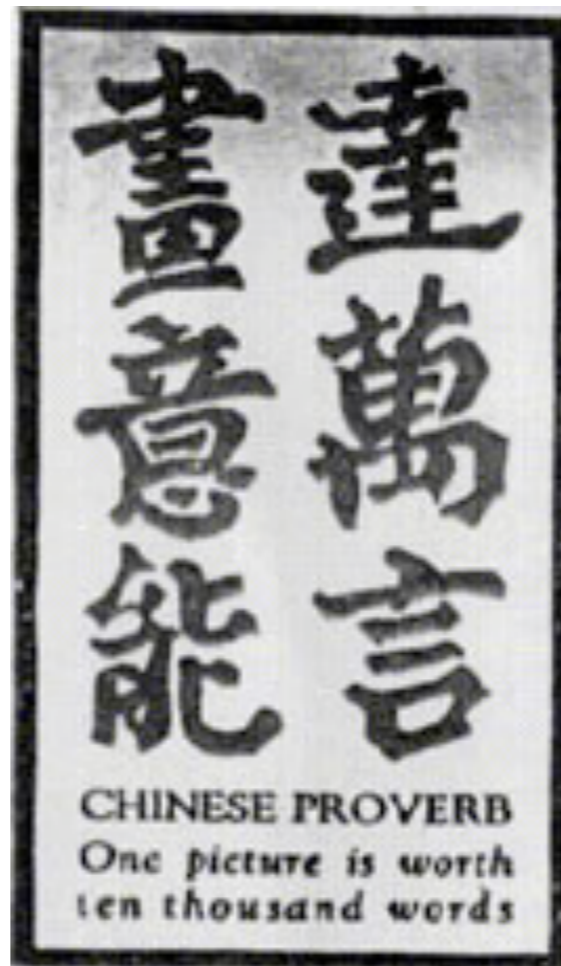 畫意能
達萬言
CHINESE PROVERB
One picture is worth
ten thousand words